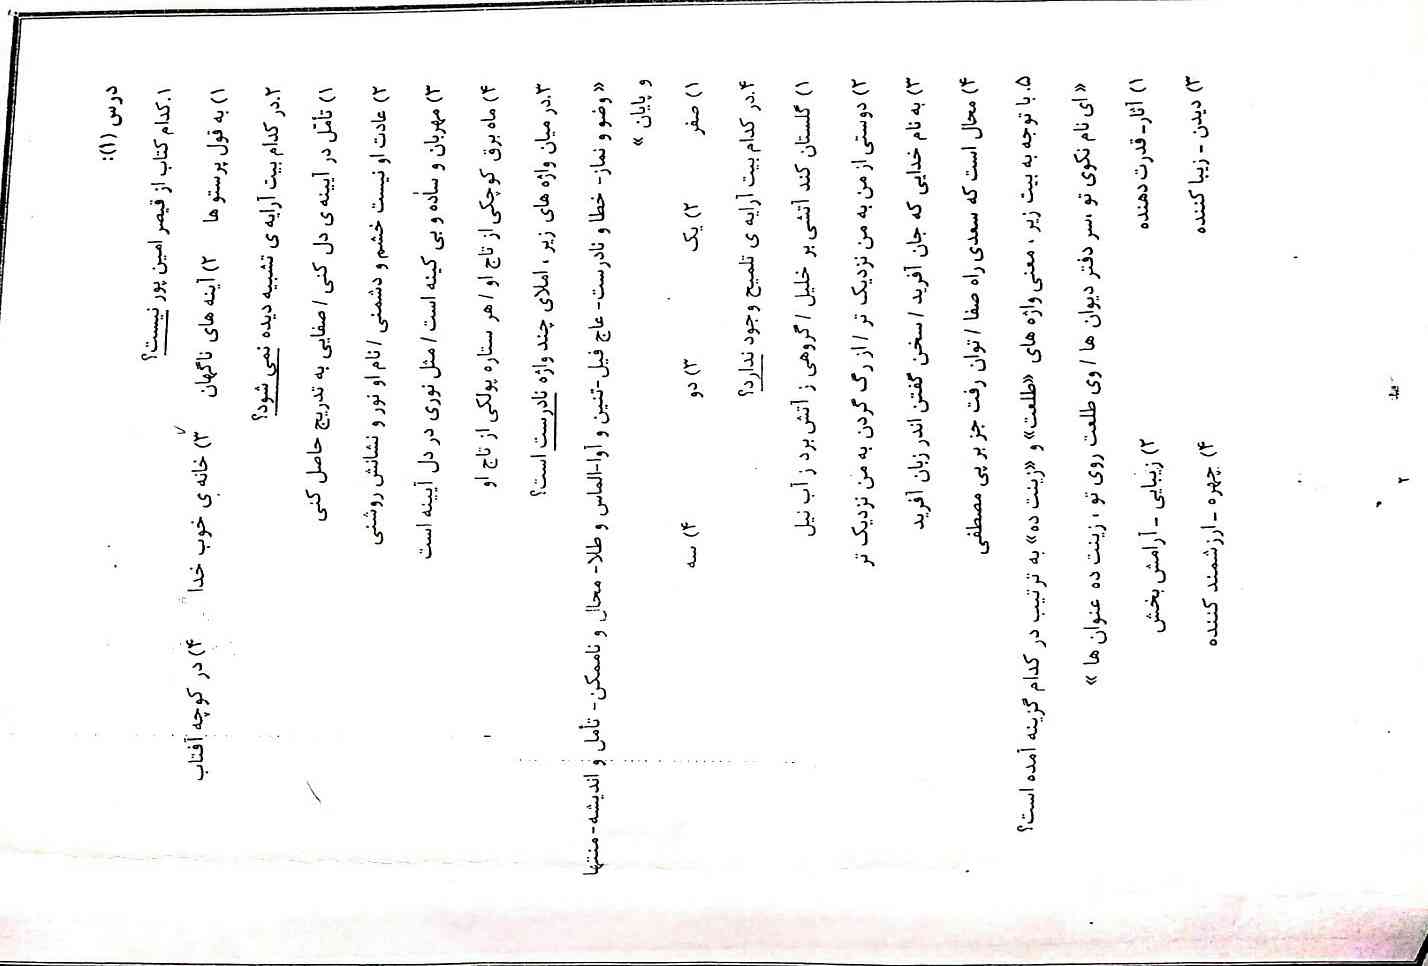 درس (۱):
۱.کدام کتاب از قیصر امین پور نیست؟
۱) به قول پرستو ها ۲) آینه های ناگهان ۳) خانه ی خوب خدا ۴) در کوچه آفتاب
۲.در کدام بیت آرایه ی تشبیه دیده نمی شود؟
۱) تأمّل در آیینه ی دل کنی / صفایی به تدریج حاصل کنی
۲) عادت او نیست خشم و دشمنی / نام او نور و نشانش روشنی
۳) مهربان و ساده و بی کینه است / مثل نوری در دل آیینه است
۴) ماه برق کوچکی از تاج او / هر ستاره پولکی از تاج او
۳.در میان واژه های زیر ، املای چند واژه نادرست است؟
« وضو و نماز- خطا و نادرست- عاج فیل-تنین و آوا-الماس و طلا- محال و ناممکن- تأمل و اندیشه-منتها
و پایان »
۱) صفر ۲) یک ۳) دو ۴) سه
۴.در کدام بیت آرایه ی تلمیح وجود ندارد؟
۱) گلستان کند آتشی بر خلیل / گروهی ز آتش برد ز آب نیل
۲) دوستی از من به من نزدیک تر / از رگ گردن به من نزدیک تر
۳) به نام خدایی که جان آفرید / سخن گفتن اندر زبان آفرید
۴) محال است که سعدی راه صفا / توان رفت جز بر پی مصطفی
۵. با توجه به بیت زیر ، معنی واژه های «طلعت» و «زینت ده» به ترتیب در کدام گزینه آمده است؟
« ای نام نکوی تو ،سر دفتر دیوان ها / وی طلعت روی تو ، زینت ده عنوان ها »
۱) آثار- قدرت دهنده ۲) زیبایی - آرامش بخش
۳) دیدن - زیبا کننده ۴) چهره - ارزشمند کننده
۲